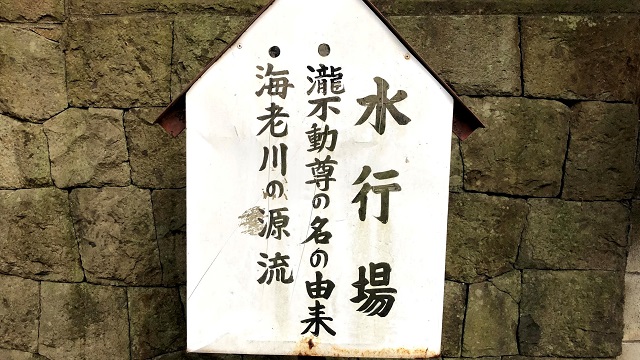 水行場
瀧不動尊の名の由来
海老川の源流